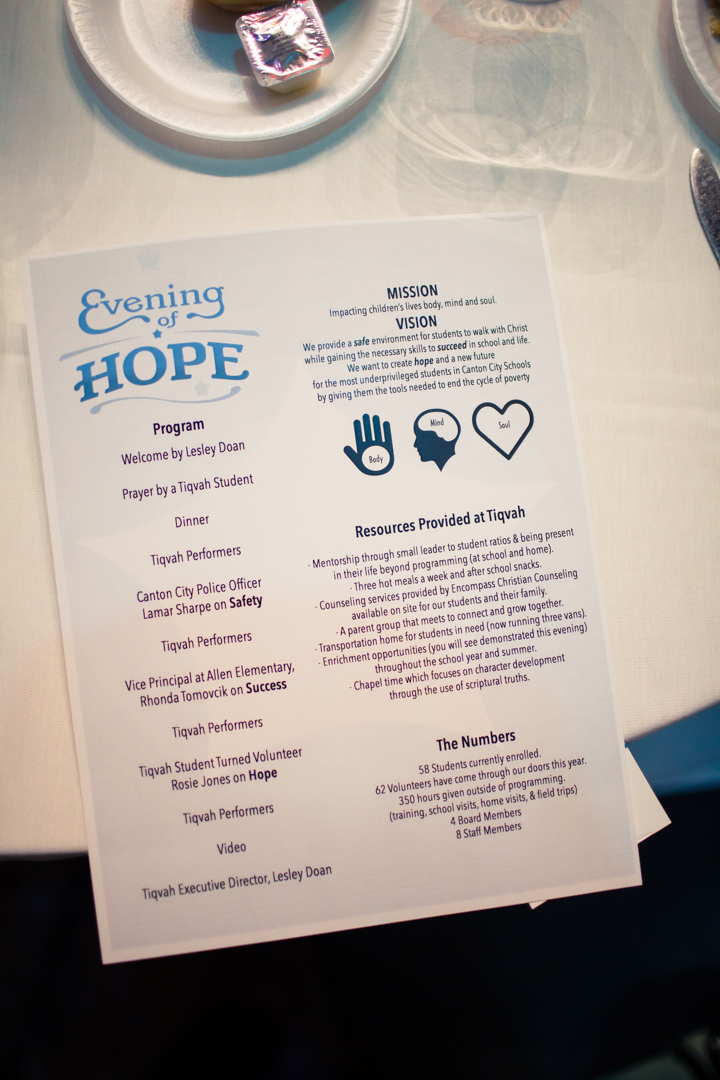 Evening
of
HOPE
Program
Welcome by Lesley Doan
Prayer by a Tiqvah Student
Dinner
Tiqvah Performers
Canton City Police Officer
Lamar Sharpe on Safety
Tiqvah Performers
Vice Principal at Allen Elementary,
Rhonda Tomovcik on Success
Tiqvah Performers
Tiqvah Student Turned Volunteer
Rosie Jones on Hope
Tiqvah Performers
Video
Tiqvah Executive Director, Lesley Doan
MISSION
Impacting children's lives body, mind and soul.
VISION
We provide a safe environment for students to walk with Christ
while gaining the necessary skills to succeed in school and life.
We want to create hope and a new future
for the most underprivileged students in Canton City Schools
by giving them the tools needed to end the cycle of poverty
Body
Mind
Soul
Resources Provided at Tiqvah
- Mentorship through small leader to student ratios & being present
in their life beyond programming (at school and home).
- Three hot meals a week and after school snacks.
- Counseling services provided by Encompass Christian Counseling
available on site for our students and their family.
- A parent group that meets to connect and grow together.
- Transportation home for students in need (now running three vans).
- Enrichment opportunities (you will see demonstrated this evening)
throughout the school year and summer.
- Chapel time which focuses on character development
through the use of scriptural truths.
The Numbers
58 Students currently enrolled.
62 Volunteers have come through our doors this year.
350 hours given outside of programming.
(training, school visits, home visits, & field trips)
4 Board Members
8 Staff Members